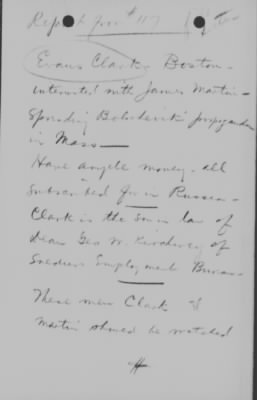 Report from # 117
Evans Clark, Boston -
interested with James Martin -
Spreading Bolsheviki propaganda
in Mass -
Have ample money - all
subscribed for in Russia -
Clark is the son in law of
Dean Geo W. Kirchwey of
Soldiers Employment Bureau -
These men Clark &
Martin should be watched